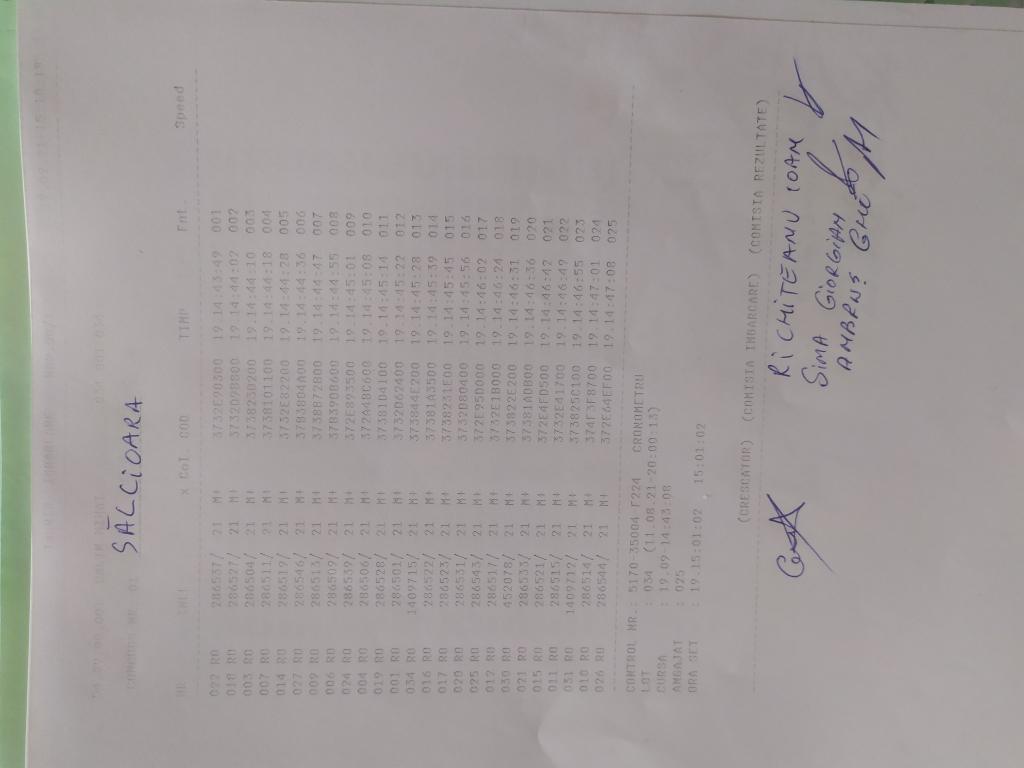 SĂLCIOARA
x Col. COD TIMP Fnt. Speed
022 RO 286537/ 21 M+ 3732E90300 19.14:43:49 001
018 RO 286527/ 21 M+ 3732D98800 19.14:44:02 002
003 RO 286504/ 21 M+ 373823D200 19.14:44:10 003
007 RO 286511/ 21 M+ 3738101100 19.14:44:18 004
014 RO 286519/ 21 M+ 3732E82200 19.14:44:28 005
027 RO 286546/ 21 M+ 3783804A00 19.14:44:36 006
009 RO 286513/ 21 M+ 3738BF2800 19.14:44:47 007
006 RO 286509/ 21 M+ 378390B600 19.14:44:55 008
024 RO 286539/ 21 M+ 372E893500 19.14:45:01 009
004 RO 286506/ 21 M+ 372A4BC600 19.14:45:08 010
019 RO 286528/ 21 M+ 37381D4100 19.14:45:14 011
001 RO 286501/ 21 M+ 3732D62400 19.14:45:22 012
034 RO 1409715/ 21 M+ 373844E200 19.14:45:28 013
016 RO 286522/ 21 M+ 37381A3500 19.14:45:39 014
017 RO 286523/ 21 M+ 3738231E00 19.14:45:45 015
020 RO 286531/ 21 M+ 3732D8D400 19.14:45:56 016
025 RO 286543/ 21 M+ 372E95D000 19.14:46:02 017
012 RO 286517/ 21 M+ 3732E18000 19.14:46:24 018
030 RO 452078/ 21 M+ 373822E200 19.14:46:31 019
021 RO 286533/ 21 M+ 37381ADB00 19.14:46:36 020
015 RO 286521/ 21 M+ 372E4ED500 19.14:46:42 021
011 RO 286515/ 21 M+ 3732E41700 19.14:46:49 022
031 RO 1409712/ 21 M+ 373825C100 19.14:46:55 023
010 RO 286514/ 21 M+ 374F3F8700 19.14:47:01 024
026 RO 286544/ 21 M+ 372E64EF00 19.14:47:08 025
CONTROL NR.: 5170 35004 F224 CRONOMETRU
LOT : 034 (11.08.21-20:00:13)
CURSA : 19.09-14:43:08
ANGAJAT : 025
ORA SET : 19.15:01:02 , 15:01:02
(CRESCATOR) (COMISIA IMBARCARE) (COMISIA REZULTATE)
RICHITEANU IOAN
SIMA GIORGIAN